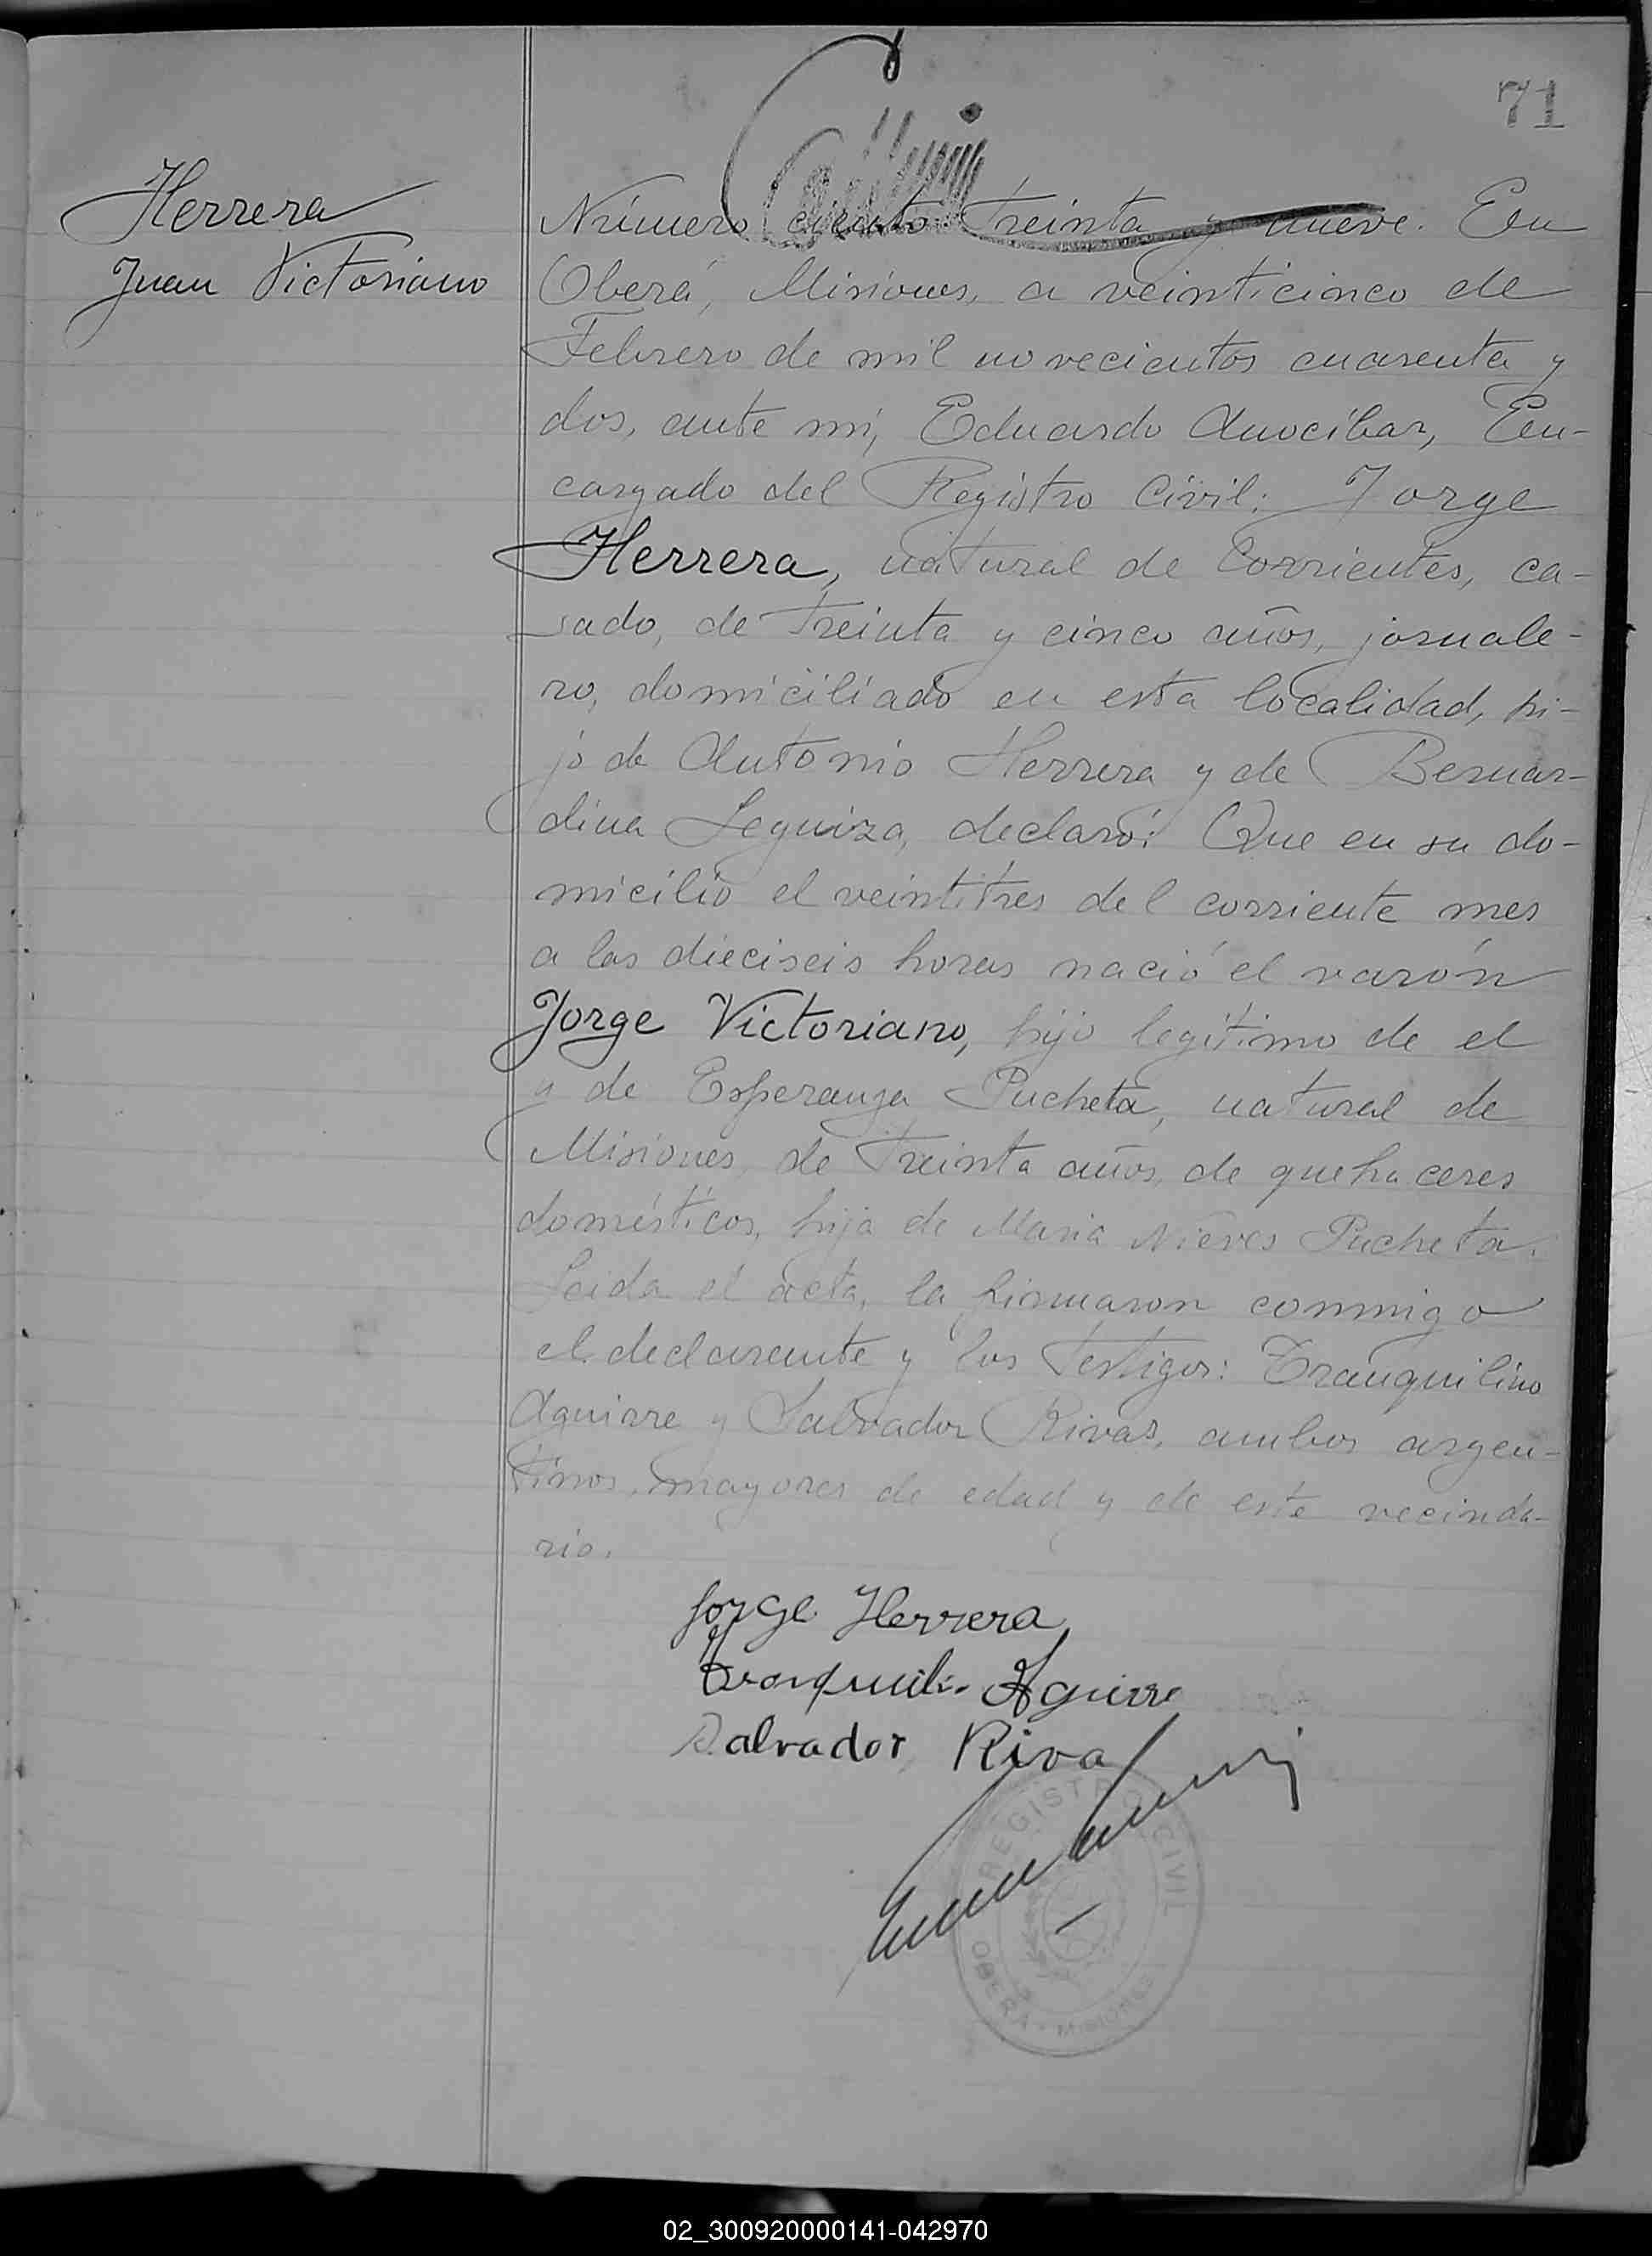 71
Herrera
Juan Victoriano
Número ciento treinta y nueve. En
Oberá, Misiones, a veinticinco de
Febrero de mil novecientos cuarenta y
dos, ante mí, Eduardo Anocíbar, En-
cargado del Registro Civil: Jorge
Herrera, natural de Corrientes, ca-
sado, de treinta y cinco años, jornale-
ro, domiciliado en esta localidad, hi-
jo de Antonio Herrera y de Bernar-
dina Leguiza, declaró: Que en su do-
micilio el veintitres del corriente mes
a las dieciseis horas nació el varón
Jorge Victoriano, hijo legítimo de el
y de Esperanza Pucheta, natural de
Misiones, de treinta años, de quehaceres
domésticos, hija de Maria Nieves Pucheta.
Leida el acta, la firmaron conmigo
el declarante y los testigos: Tranquilino
Aguirre y Salvador Rivas, ambos argen-
tinos, mayores de edad y de este vecinda-
rio.
Jorge Herrera
Aguirre
Salvador Riva
REGISTRO CIVIL
OBERA - MISIONES
02_300920000141-042970